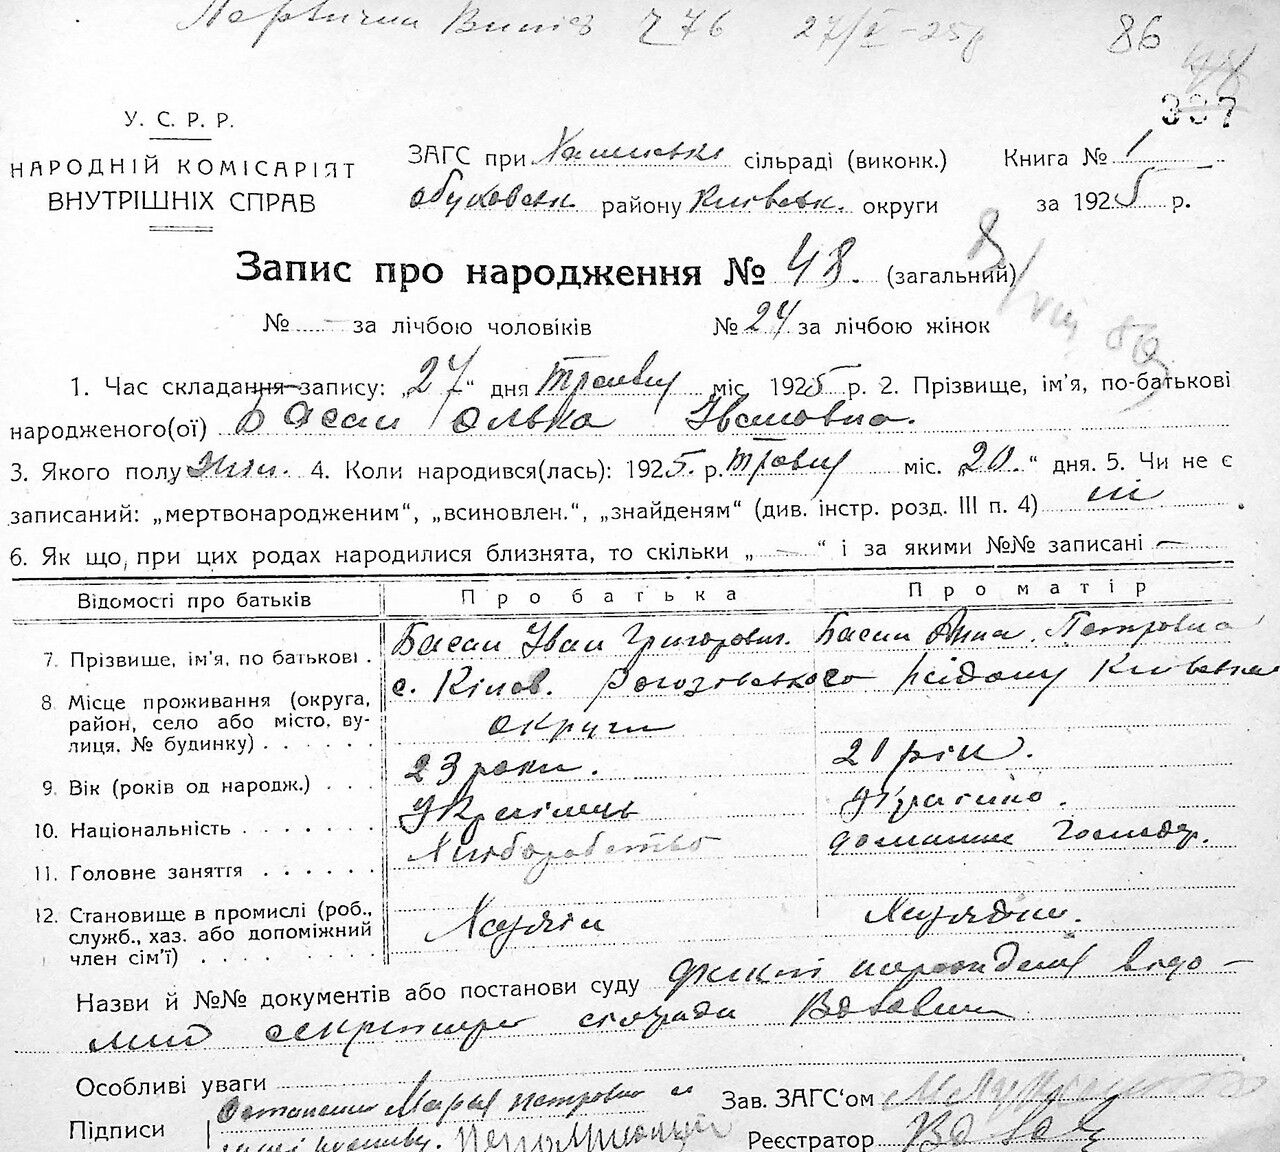 Первични Випіс Ч 76 27/V-25р 86
337
У. С. Р. Р.
НАРОДНІЙ КОМІСАРІЯТ
ВНУТРІШНІХ СПРАВ
ЗАГС при сільраді (виконк.) Книга № 1
Обуховськ. району Київськ. округи за 1925 р.
Запис про народження № 48. (загальний)
№ — за лічбою чоловіків № 24 за лічбою жінок
1. Час складання запису: „27“ дня Травня міс. 1925 р. 2. Прізвище, ім'я, по-батькові
народженого(ої) Басан Олька Івановна.
3. Якого полу жін. 4. Коли народився(лась): 1925. р. Травня міс. „20.“ дня. 5. Чи не є
записаний: „мертвонародженим“, „всиновлен.“, „знайденям“ (див. інстр. розд. III п. 4) ні
6. Як що, при цих родах народилися близнята, то скільки „ — “ і за якими №№ записані —
Відомості про батьків Про батька Про матір
7. Прізвище, ім'я, по батькові . Басан Іван Григорович. Басан Анна. Петровна
8. Місце проживання (округа, район, село або місто, вулиця. № будинку) . . . . . . с. Кілов. Рогозівського району Київської
округи
9. Вік (років од народж.) . . . 23 роки. 21 рік.
10. Національність . . . . . . . Українець Українка.
11. Головне заняття . . . . . . Хліборобство домашнє господар.
12. Становище в промислі (роб., служб., хаз. або допоміжний член сім'ї) . . . . . . . . . Хазяїн Хазяйка.
Назви й №№ документів або постанови суду факт народження відо-
мий секретарю сільради
Особливі уваги
Підписи Мария Петровна
Зав. ЗАГС'ом
Реєстратор